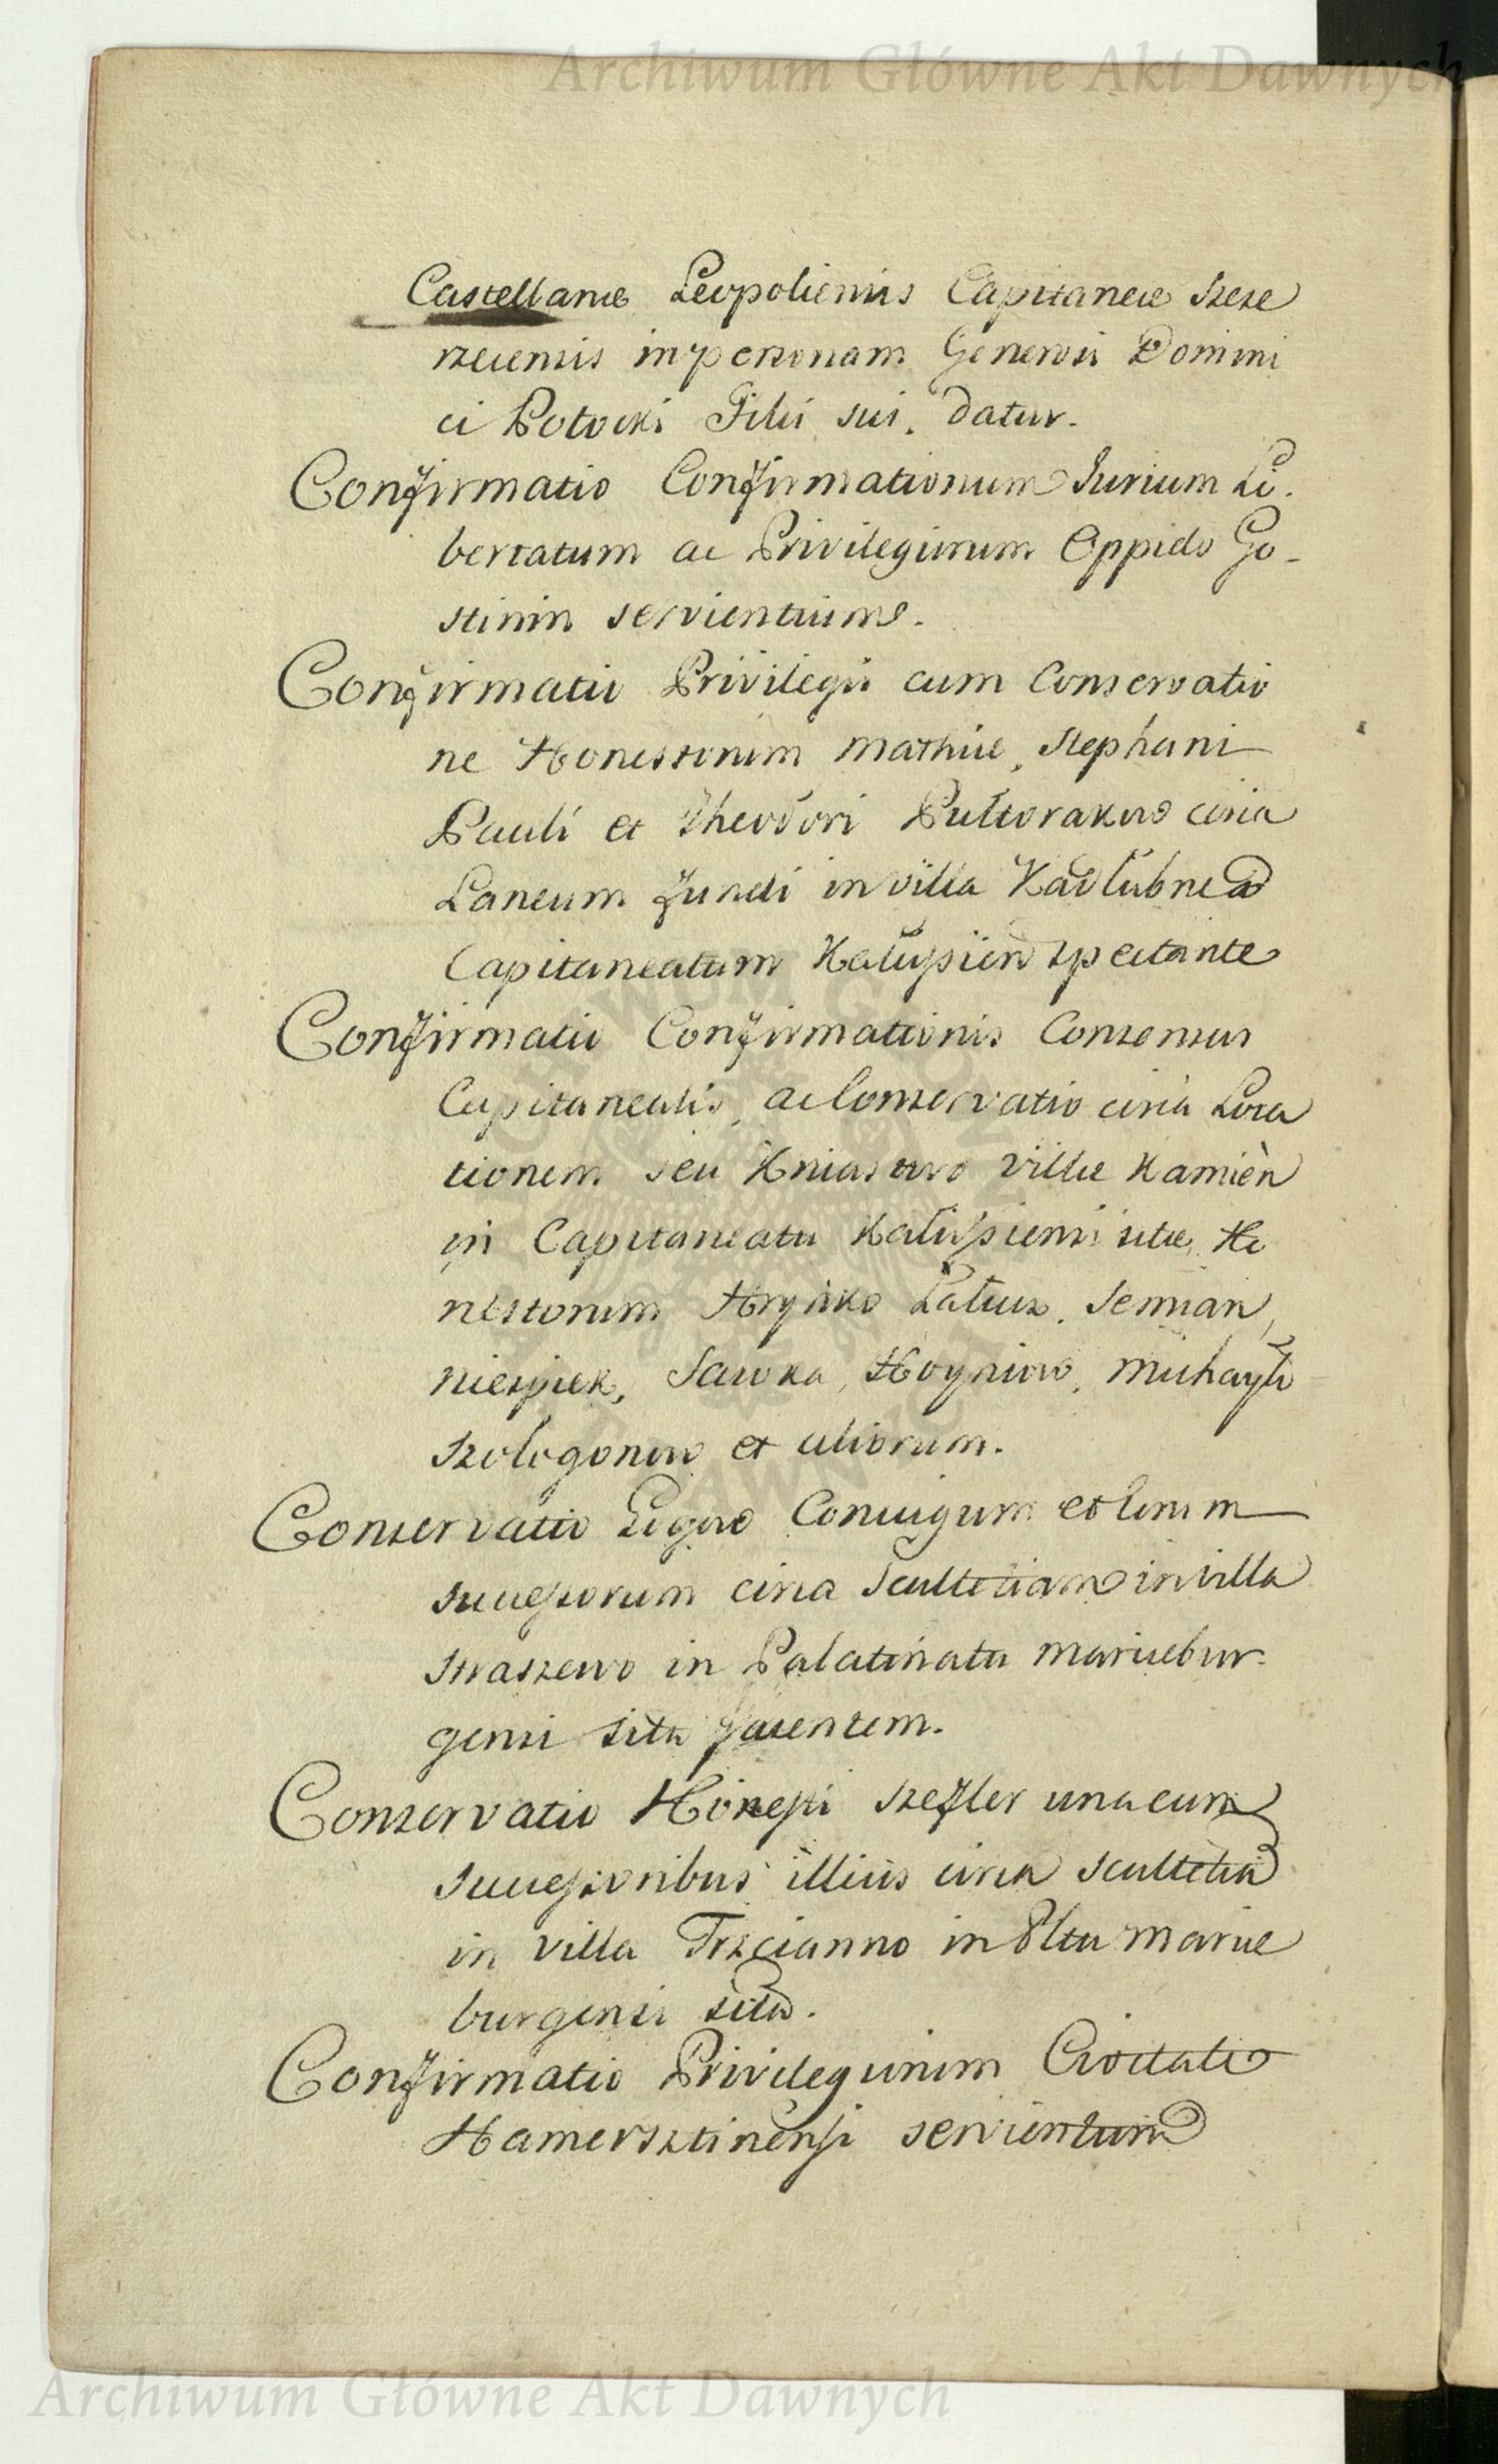 Archiwum Główne Akt Dawnych
Castellanie Leopoliensis Capitanei Szcze
rzecensis in personam Generosi Domini
ci Potocki Filii sui datur.
Confirmatio Confirmationum Jurium Li.
bertatum ac Privilegiorum Oppido Go-
stinin servientium.
Confirmatio Privilegii cum Conservatio
ne Honestorum Mathiæ, Stephani
Pauli et Theodori Pultorakow circa
Laneum fundi in villa Kadłubne ad
Capitaneatum Kałussien spectante
Confirmatio Confirmationis Consensus
Capitanealis, ac Conservatio circa Loca
tionem seu Kniastwo villæ Kamièn
in Capitaneatu Kałussiensi sitæ Ho
nestorum Hryńko Semian,
Sawka, Michayło
et aliorum.
Conservatio Coniugum et Eorum
successorum circa Scultetiam in villa
Straszewo in Palatinatu Mariæbur-
gensi sita jacentem.
Conservatio Honesti Szefler una cum
successoribus illius circa Scultetia
in villa Trzcianno in Pltu Mariæ
burgensi sita.
Confirmatio Privilegiorum Civitati
Hamersztinensi servientium
Archiwum Główne Akt Dawnych